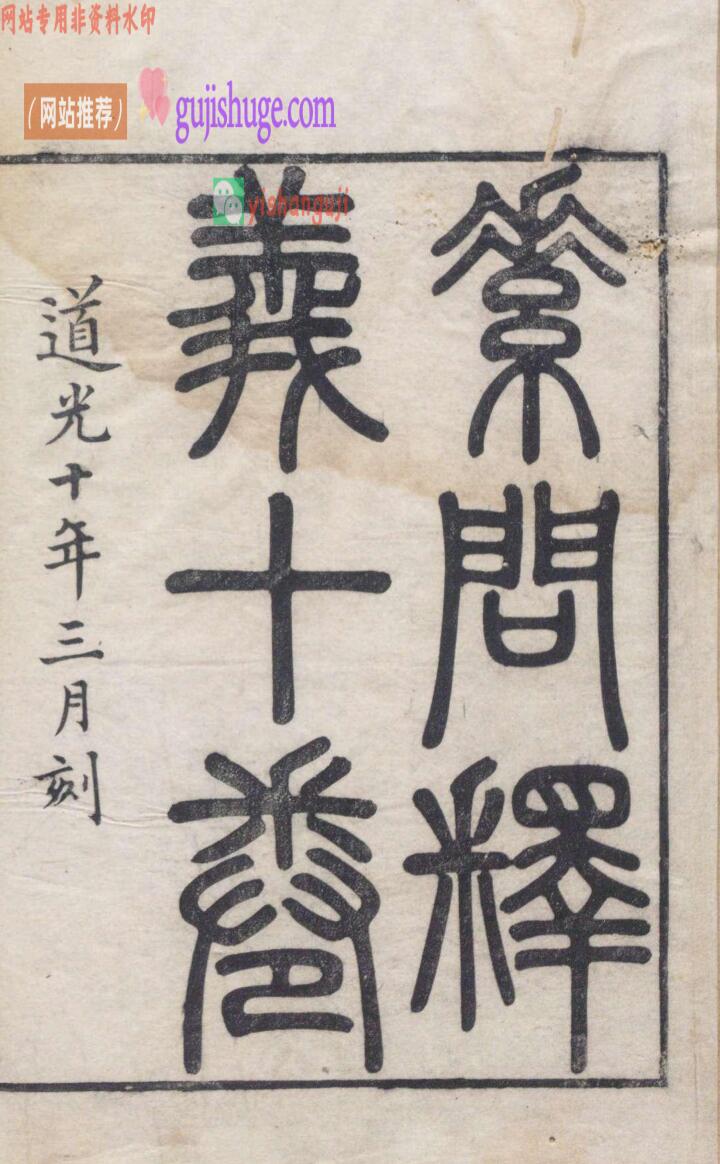 网站专用非资料水印
(网站推荐)
gujishuge.com
yishanguji
素問釋
義十卷
道光十年三月刻